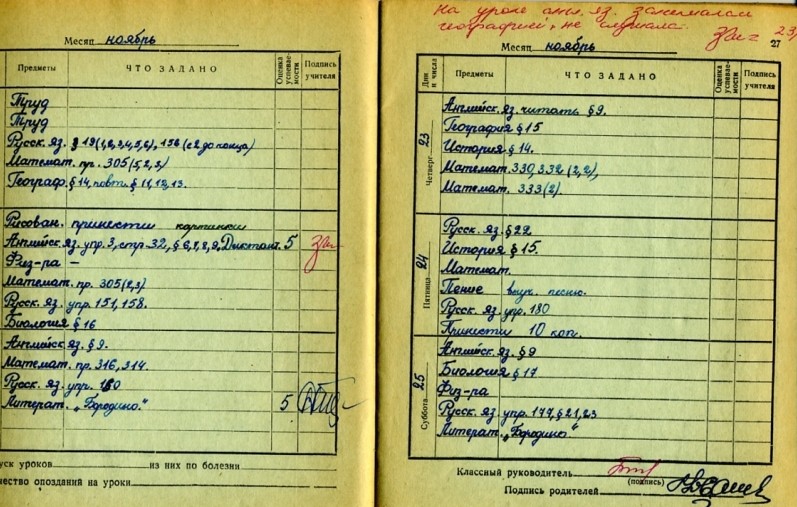 Месяц ноябрь
Предметы ЧТО ЗАДАНО Оценка успевае-мости Подпись учителя
Труд
Труд
Русск. яз. § 19(1,2,3,4,5,6), 156 (с 2 до конца)
Математ. пр. 305(5,2,3)
Географ. § 14, повт. § 11,12,13.
Рисован. принести картинки
Английск. яз. упр. 3, стр-32, § 6,7,8,9, Диктант. 5
Физ-ра –
Математ. пр. 305(2,3)
Русск. яз. упр. 151, 158.
Биология § 16
Английск. яз. § 9.
Математ. пр. 316, 314.
Русск. яз. упр. 160
Литерат. „Бородино.“ 5
уск уроков из них по болезни
чество опозданий на уроки
На уроке англ. яз. занималась
географией, не слушала. 23/
27
Месяц ноябрь
Дни и числа Предметы ЧТО ЗАДАНО Оценка успевае-мости Подпись учителя
Четверг 23
Английск. яз. читать § 9.
География § 15
История § 14.
Математ. 330, 332 (2,2),
Математ. 333(2)
Пятница 24
Русск. яз. § 22
История § 15.
Математ.
Пение выуч. песню.
Русск. яз. упр. 180
Принести 10 коп.
Суббота 25
Английск. яз. § 9
Биология § 17
Физ-ра
Русск. яз. упр. 177, § 21,23
Литерат. „Бородино.“
Классный руководитель
(подпись)
Подпись родителей